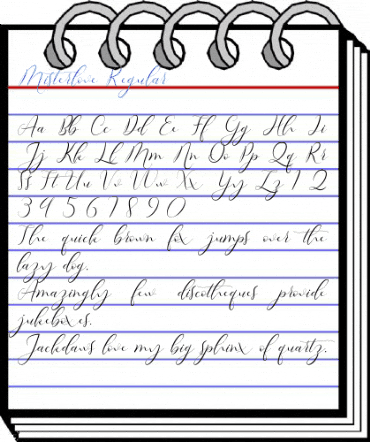 Misterlove Regular
Aa Bb Cc Dd Ee Ff Gg Hh Ii
Jj Kk Ll Mm Nn Oo Pp Qq Rr
Ss Tt Uu Vv Ww Xx Yy Zz 1 2
3 4 5 6 7 8 9 0
The quick brown fox jumps over the
lazy dog.
Amazingly few discotheques provide
jukeboxes.
Jackdaws love my big sphinx of quartz.